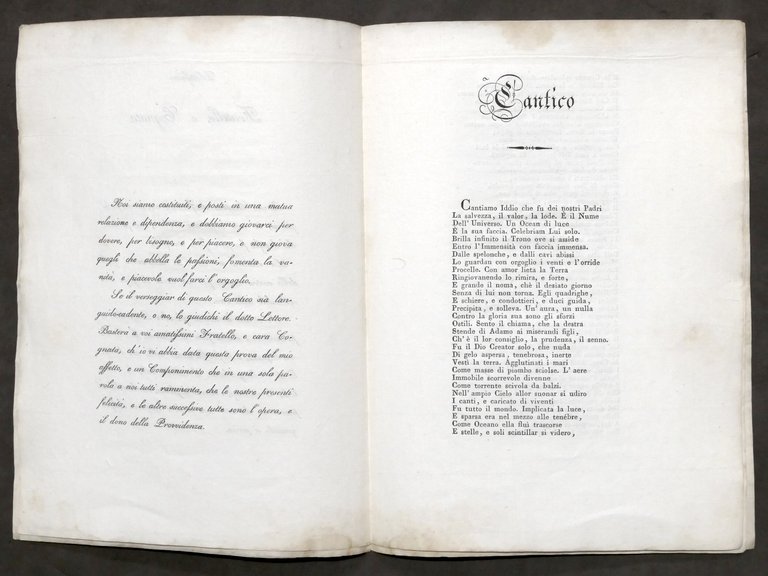 Noi siamo costituiti, e posti in una mutua
relazione e dipendenza, e dobbiamo giovarci per
dovere, per bisogno, e per piacere, e non giova
quegli che abbella le passioni, fomenta la va-
nità, e piacevole vuol farci l'orgoglio.
Se il verseggiar di questo Cantico sia lan-
guido-cadente, o no, lo giudichi il dotto Lettore.
Basterà a voi amatissimi Fratello, e cara Co-
gnata, ch'io vi abbia data questa prova del mio
affetto, e un Componimento che in una sola pa-
rola a noi tutti rammenta, che le nostre presenti
felicità, e le altre successive tutte sono l'opera, e
il dono della Provvidenza.
Cantico
Cantiamo Iddio che fu dei nostri Padri
La salvezza, il valor, la lode. È il Nume
Dell' Universo. Un Ocean di luce
È la sua faccia. Celebriam Lui solo.
Brilla infinito il Trono ove si asside
Entro l'Immensità con faccia immensa.
Dalle spelonche, e dalli cavi abissi
Lo guardan con orgoglio i venti e l'orride
Procelle. Con amor lieta la Terra
Ringiovanendo lo rimira, e forte,
E grande il noma, chè il desiato giorno
Senza di lui non torna. Egli quadrighe,
E schiere, e condottieri, e duci guida,
Precipita, e solleva. Un' aura, un nulla
Contro la gloria sua son gli sforzi
Ostili. Sento il chiama, che la destra
Stende di Adamo ai miserandi figli,
Ch'è il lor consiglio, la prudenza, il senno.
Fu il Dio Creator solo, che nuda
Di gelo aspersa, tenebrosa, inerte
Vestì la terra. Agglutinati i mari
Come masse di piombo sciolse. L' aere
Immobile scorrevole divenne
Come torrente scivola da balzi.
Nell' ampio Cielo allor suonar si udiro
I canti, e caricato di viventi
Fu tutto il mondo. Implicata la luce,
E sparsa era nel mezzo alle tenébre,
Come Oceano ella fluì trascorse
E stelle, e soli scintillar si videro,